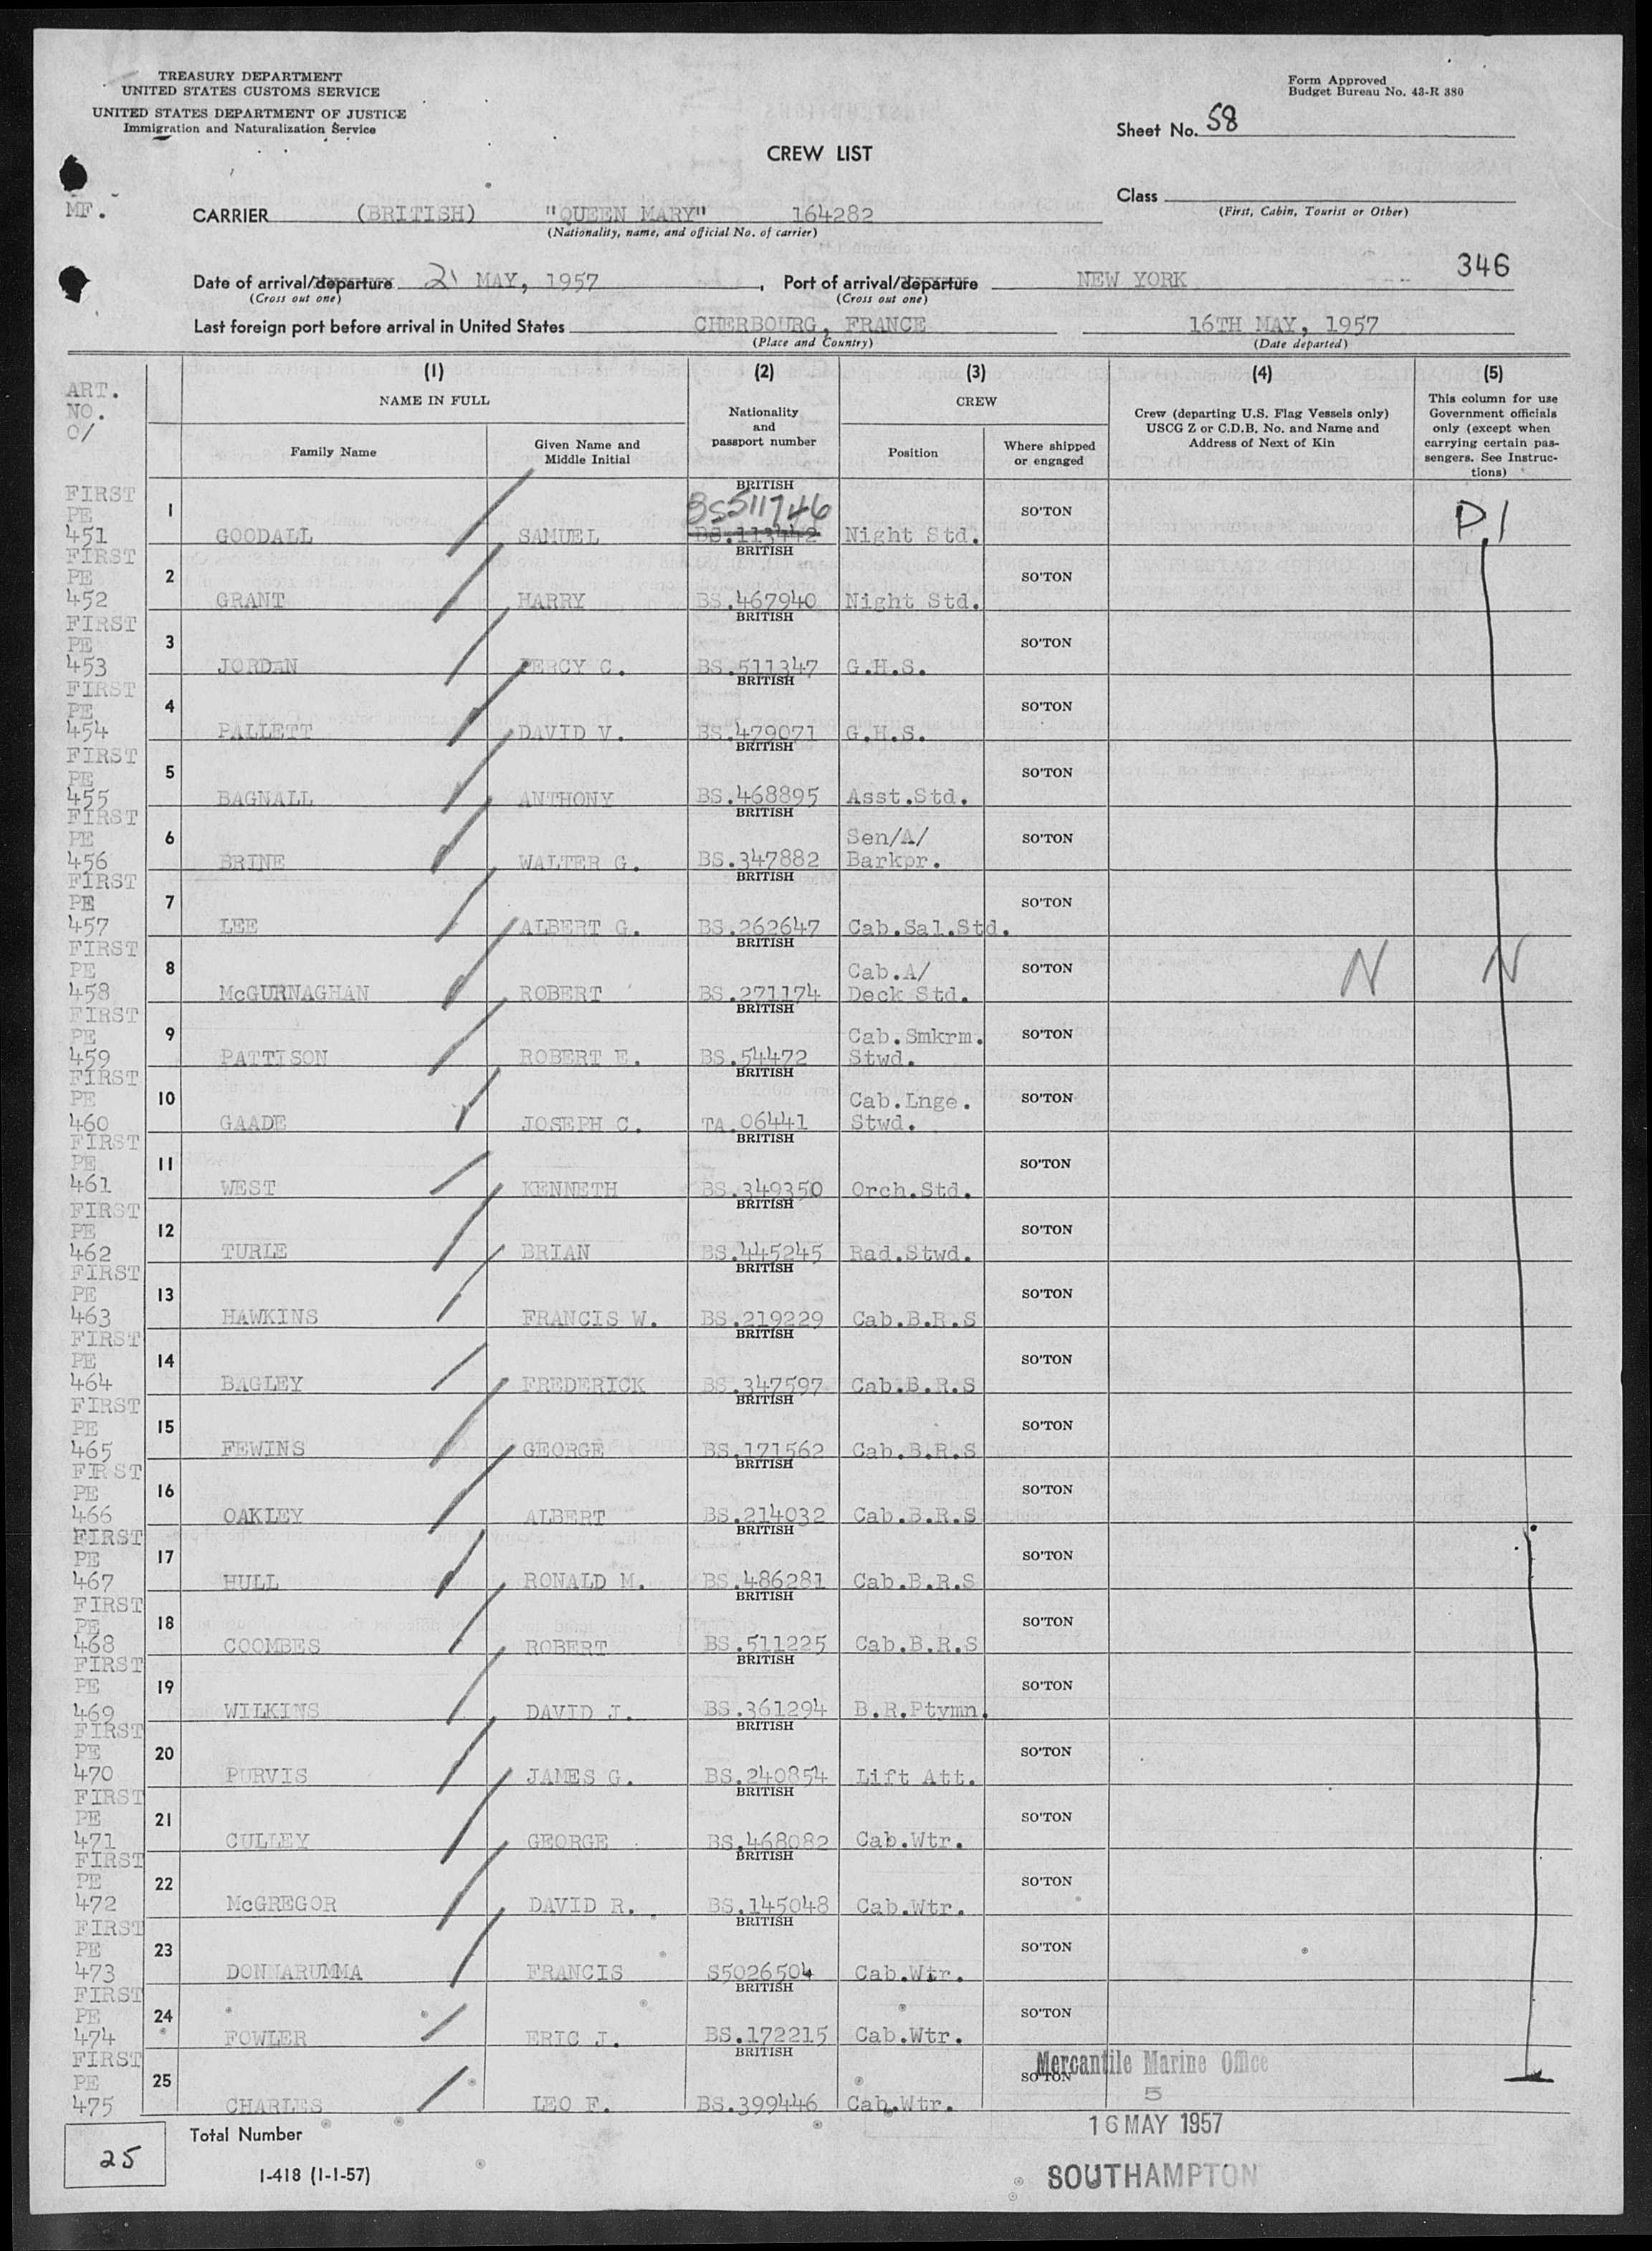 TREASURY DEPARTMENT
UNITED STATES CUSTOMS SERVICE
UNITED STATES DEPARTMENT OF JUSTICE
Immigration and Naturalization Service
Form Approved
Budget Bureau No. 43-R 380
Sheet No. 58
CREW LIST
Class
(First, Cabin, Tourist or Other)
MF.
CARRIER (BRITISH) "QUEEN MARY" 164282
(Nationality, name, and official No. of carrier)
346
Date of arrival/departure 21 MAY, 1957, Port of arrival/departure NEW YORK
(Cross out one) (Cross out one)
Last foreign port before arrival in United States CHERBOURG, FRANCE 16TH MAY, 1957
(Place and Country) (Date departed)
ART. NO. O/
(1) (2) (3) (4) (5)
NAME IN FULL
Family Name
Given Name and Middle Initial
Nationality and passport number
CREW
Position
Where shipped or engaged
Crew (departing U.S. Flag Vessels only) USCG Z or C.D.B. No. and Name and Address of Next of Kin
This column for use Government officials only (except when carrying certain passengers. See Instructions)
FIRST PE 451 1 GOODALL SAMUEL BRITISH BS511746 BS.113442 Night Std. SO'TON P.1
FIRST PE 452 2 GRANT HARRY BRITISH BS.467940 Night Std. SO'TON
FIRST PE 453 3 JORDAN PERCY C. BRITISH BS.511347 G.H.S. SO'TON
FIRST PE 454 4 PALLETT DAVID V. BRITISH BS.479071 G.H.S. SO'TON
FIRST PE 455 5 BAGNALL ANTHONY BRITISH BS.468895 Asst.Std. SO'TON
FIRST PE 456 6 BRINE WALTER G. BRITISH BS.347882 Sen/A/ Barkpr. SO'TON
FIRST PE 457 7 LEE ALBERT G. BRITISH BS.262647 Cab.Sal.Std. SO'TON
FIRST PE 458 8 McGURNAGHAN ROBERT BRITISH BS.271174 Cab.A/ Deck Std. SO'TON N N
FIRST PE 459 9 PATTISON ROBERT E. BRITISH BS.54472 Cab.Smkrm. Stwd. SO'TON
FIRST PE 460 10 GAADE JOSEPH C. BRITISH TA.06441 Cab.Lnge. Stwd. SO'TON
FIRST PE 461 11 WEST KENNETH BRITISH BS.349350 Orch.Std. SO'TON
FIRST PE 462 12 TURLE BRIAN BRITISH BS.445245 Rad.Stwd. SO'TON
FIRST PE 463 13 HAWKINS FRANCIS W. BRITISH BS.219229 Cab.B.R.S SO'TON
FIRST PE 464 14 BAGLEY FREDERICK BRITISH BS.347597 Cab.B.R.S SO'TON
FIRST PE 465 15 FEWINS GEORGE BRITISH BS.171562 Cab.B.R.S SO'TON
FIRST PE 466 16 OAKLEY ALBERT BRITISH BS.214032 Cab.B.R.S SO'TON
FIRST PE 467 17 HULL RONALD M. BRITISH BS.486281 Cab.B.R.S SO'TON
FIRST PE 468 18 COOMBES ROBERT BRITISH BS.511225 Cab.B.R.S SO'TON
FIRST PE 469 19 WILKINS DAVID J. BRITISH BS.361294 B.R.Ptymn. SO'TON
FIRST PE 470 20 PURVIS JAMES G. BRITISH BS.240854 Lift Att. SO'TON
FIRST PE 471 21 CULLEY GEORGE BRITISH BS.468082 Cab.Wtr. SO'TON
FIRST PE 472 22 McGREGOR DAVID R. BRITISH BS.145048 Cab.Wtr. SO'TON
FIRST PE 473 23 DONNARUMMA FRANCIS BRITISH S5026504 Cab.Wtr. SO'TON
FIRST PE 474 24 FOWLER ERIC J. BRITISH BS.172215 Cab.Wtr. SO'TON
FIRST PE 475 25 CHARLES LEO F. BRITISH BS.399446 Cab.Wtr. SO'TON
Mercantile Marine Office
5
16 MAY 1957
SOUTHAMPTON
25 Total Number
I-418 (1-1-57)